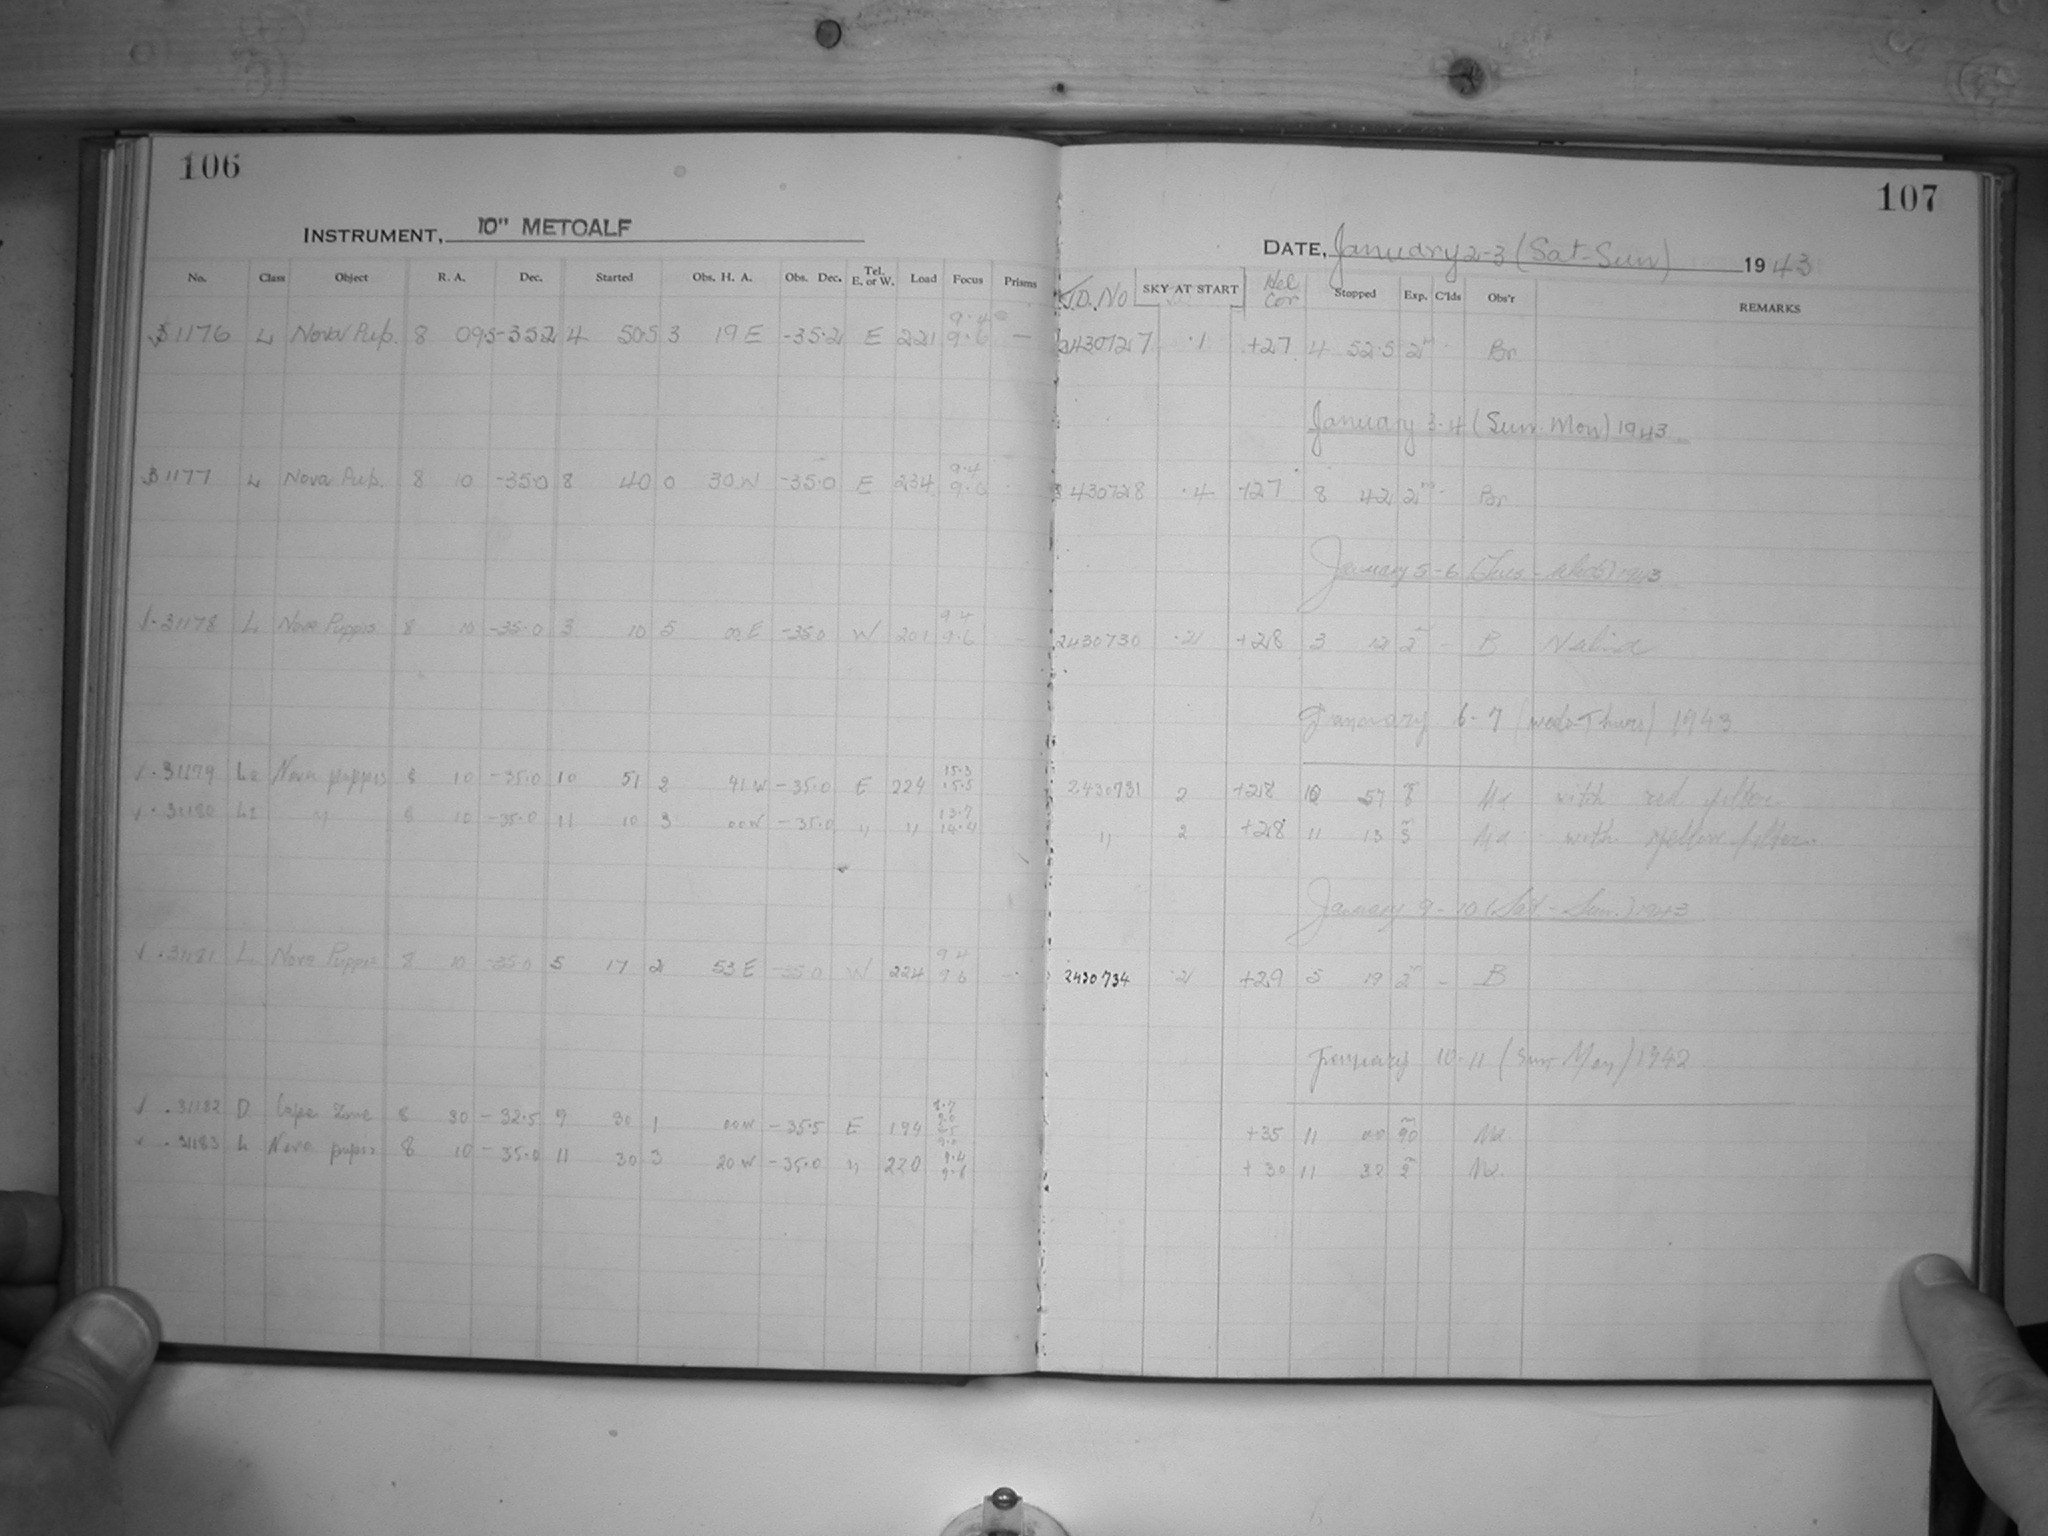 106
INSTRUMENT, 10" METCALF
No. Class Object R. A. Dec. Started Obs. H. A. Obs. Dec. Tel. E. or W. Load Focus Prisms
31176 L Nova Pup. 8 09.5 -35.2 4 50.5 3 19 E -35.2 E 221 9.4 9.6 —
31177 L Nova Pup. 8 10 -35.0 8 40 0 30 W -35.0 E 234 9.4 9.6
31178 L Nova Puppis 8 10 -35.0 3 10 5 00 E -35.0 W 201 9.4 9.6 -
31179 Nova puppis 8 10 -35.0 10 51 2 41 W -35.0 E 224 15.3 15.5
31180 " 8 10 -35.0 11 10 3 00 W -35.0 " " 13.7 14.4
31181 L Nova Puppis 8 10 -35.0 5 17 2 53 E -35.0 W 224 9.4 9.6 -
31182 D Cape Zone 8 30 -32.5 9 30 1 00 W -35.5 E 194
31183 L Nova pupis 8 10 -35.0 11 30 3 20 W -35.0 " 220 9.4 9.6
107
DATE, January 2-3 (Sat-Sun) 1943
J.D. No SKY AT START Hel Cor Stopped Exp. C'lds Obs'r REMARKS
2430727 .1 +27 4 52.5 2m Br
January 3-4 (Sun-Mon) 1943
2430728 .4 +27 8 42 2m Br
January 5-6 (Tues-Weds) 1943
2430730 .2 +28 3 12 2m - B
January 6-7 (Weds-Thurs) 1943
2430731 2 +28 10 57 Md with red filter
" 2 +28 11 13 3m Md with yellow filter
January 9-10 (Sat-Sun.) 1943
2430734 .2 +29 5 19 2m - B
January 10-11 (Sun-Mon) 1942
+35 11 00 90m Md
+30 11 32 2m Md.